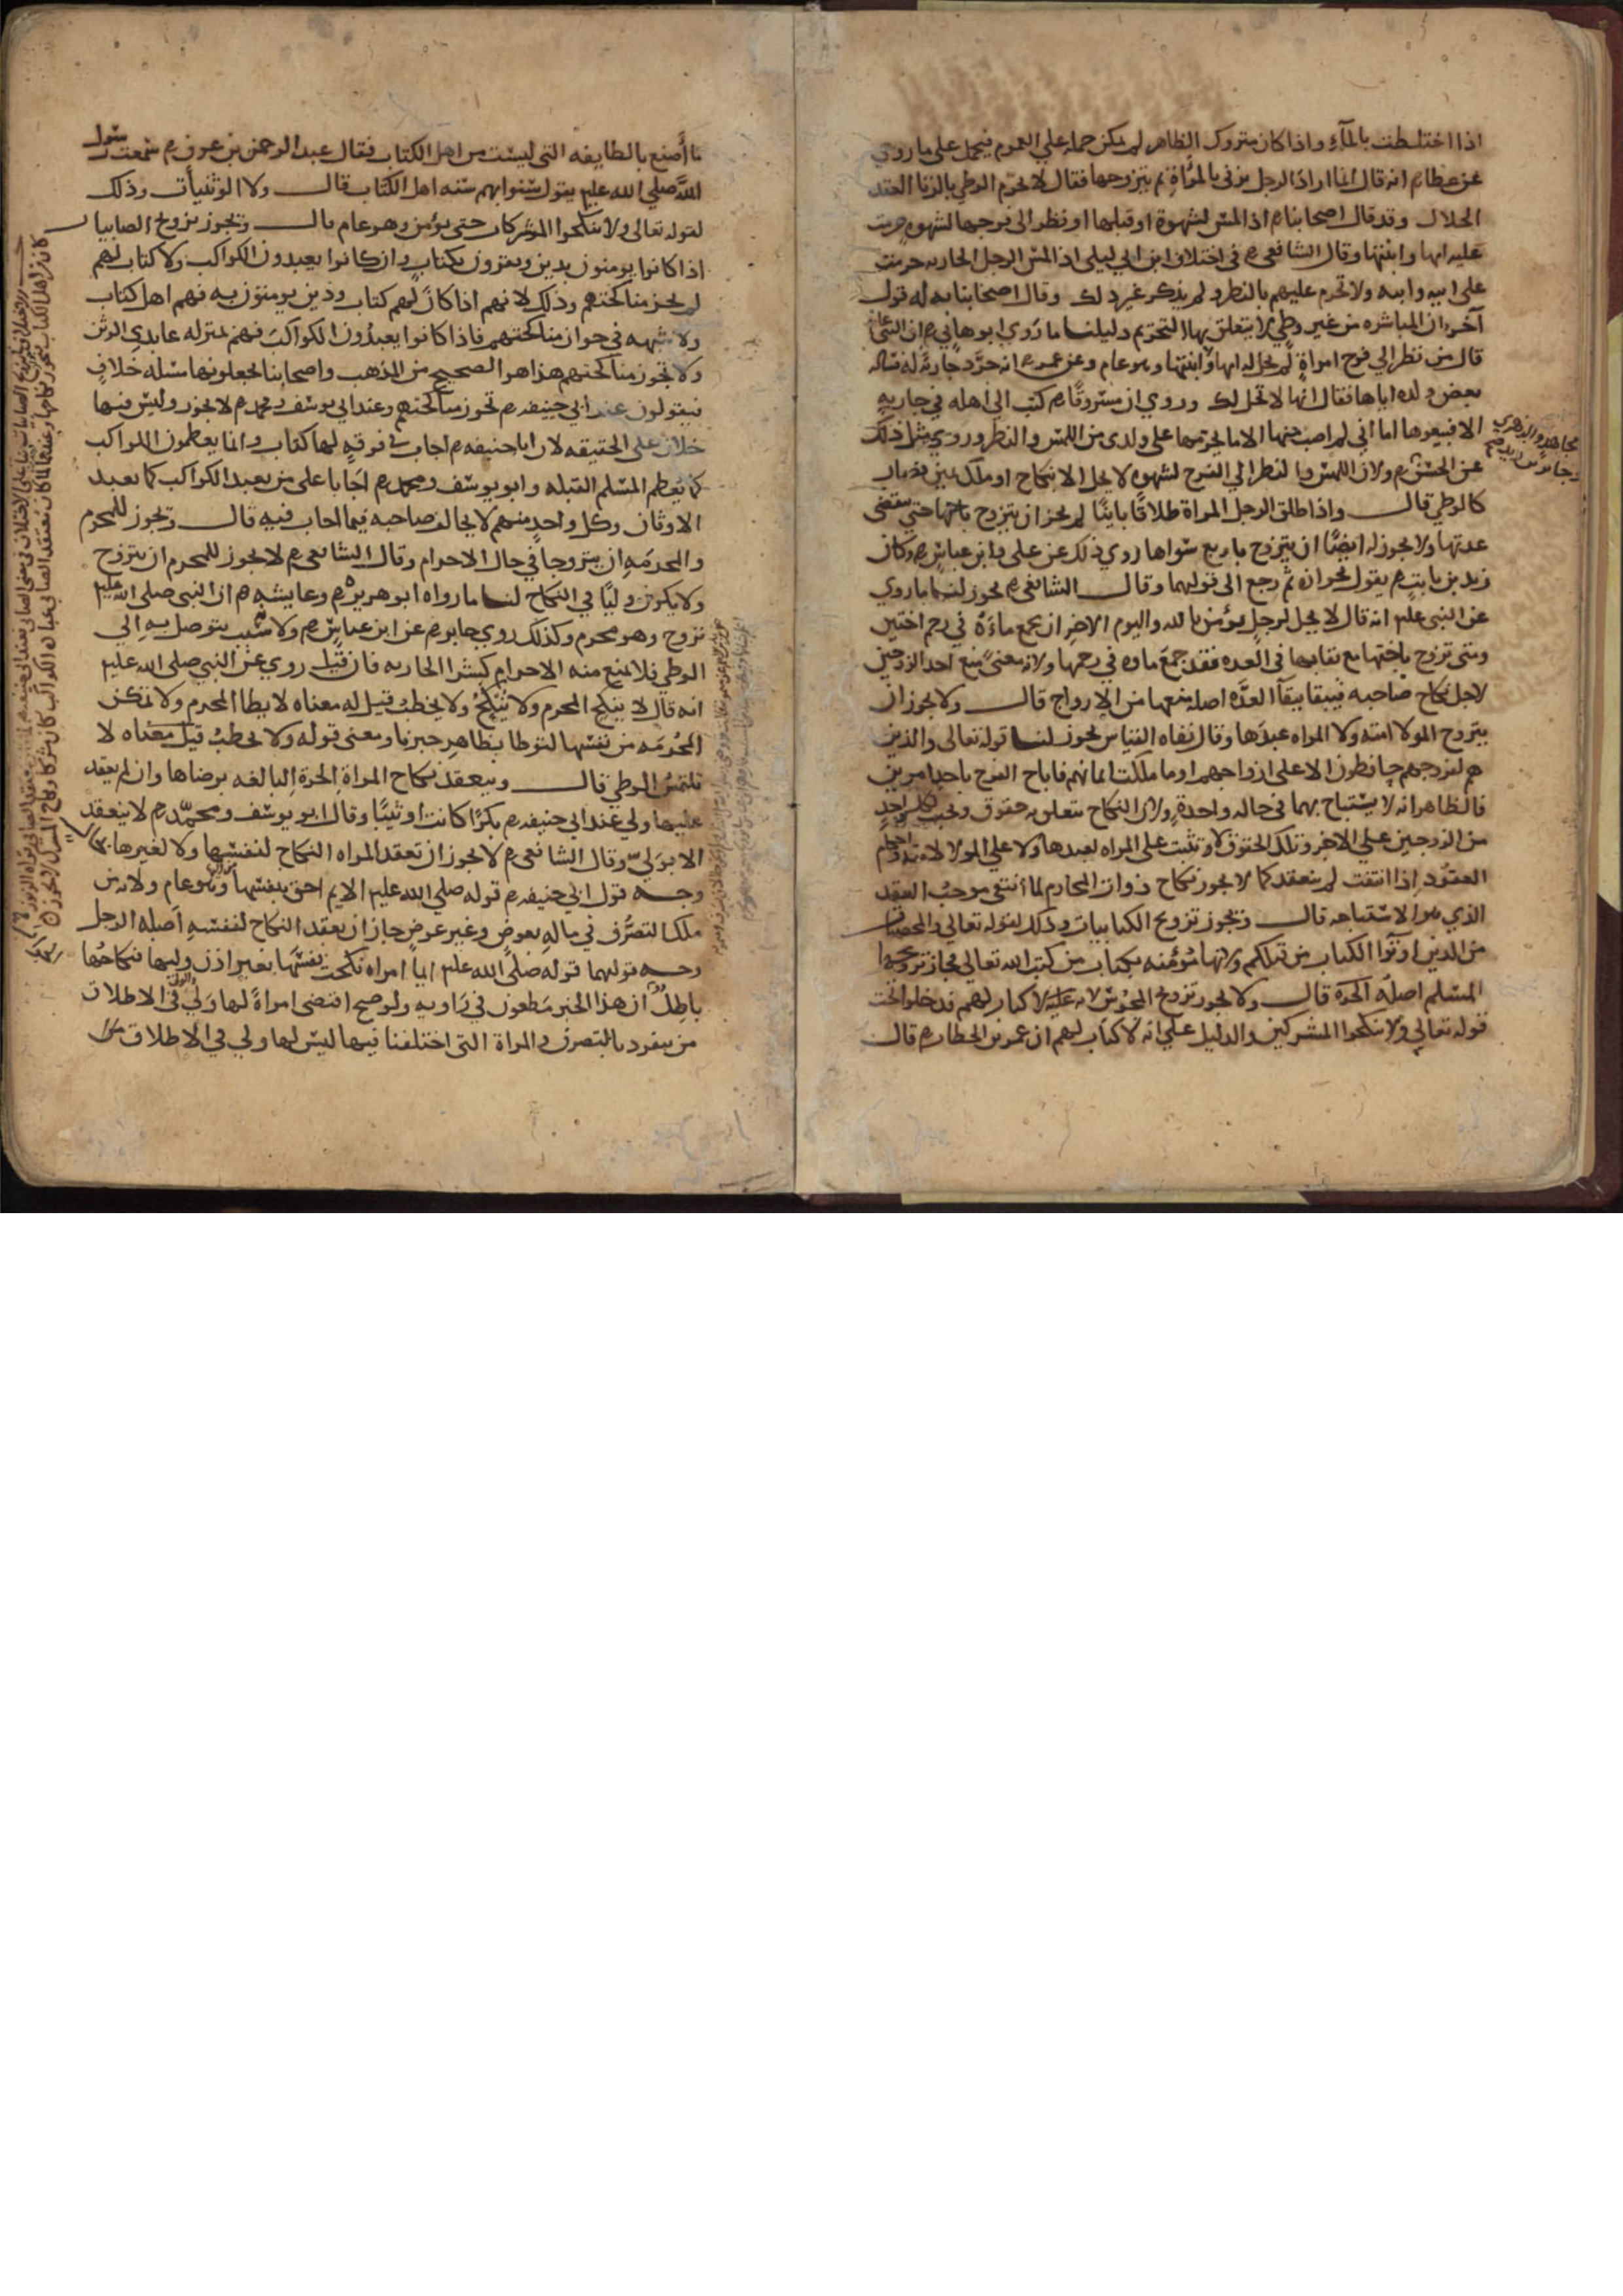 اذا اختلطت بالمآء واذا كان متروك الظاهر لم يمكن حمله علي العموم فيحمل على ما روي
عن عطا م انه قال انما اراد الرجل يزني بالمرأة ثم يتزوجها فقال لا يحرم الوطي بالزنا العقد
الحلال وقد قال اصحابنا م اذا لمس لشهوة او قبلها او نظر الى فرجها لشهوه حرمت
عليه امها وابنتها وقال الشافعي م في اختلاف ابن ابي ليلى اذا لمس الرجل الجاريه حرمت
على ابيه وابنه ولا تحرم عليهم بالنظر ولم يذكر غير ذلك وقال اصحابنا به له قول
آخر ان المباشره من غير وطي لا يتعلق بها التحريم دليلنا ما روي ابو هاني م ان النبي
قال من نظر الي فرج امراة لم تحل له امها ولا ابنتها وهو عام وعن عمر م انه جرد جارية له فساله
بعض ولده اياها فقال انها لا تحل لك وروي ان مسروقا م كتب الى اهله في جاريه
الا فبيعوها اما اني لم اصب منها الا ما يحرمها على ولدى من اللمس والنظر وروي مثل ذلك
مجاهد والزهري
عن الحسن م ولان اللمس والنظر الي الفرج لشهوه لا يحل الا بنكاح او ملك يمين فصار
كالوطي قال واذا طلق الرجل المراة طلاقا باينا لم يجز ان يتزوج باختها حتي تنقضي
عدتها ولا يجوز له ايضا ان يتزوج باربع سواها روي ذلك عن على وابن عباس م وكان
زيد بن ثابت م يقول بجوازه ثم رجع الى قولهما وقال الشافعي م يجوز لنا ما روي
عن النبي عليه انه قال لا يحل لرجل يؤمن بالله واليوم الاخر ان يجمع ماءه في رحم اختين
ومتى تزوج باختها مع بقايها في العده فقد جمع ماه في رحمها ولانه معنى يمنع احد الزوجين
لاجل نكاح صاحبه فيبقا ببقآ العدّه اصله منعها من الازواج قال ولا يجوز ان
يتزوج المولا امته ولا المراه عبدها وقال نفاه القياس يجوز لنا قوله تعالى والذين
هم لفروجهم حافظون الا على ازواجهم او ما ملكت ايمانهم فاباح الفرج باحد امرين
فالظاهر انه لا يستباح بهما في حاله واحدة ولان النكاح يتعلق به حقوق وتجب لكل واحد
من الزوجين علي الاخر وتلك الحقوق لا تثبت على المراه لعبدها ولا علي المولا لامته
العقود اذا انتفت لم ينعقد كما لا يجوز نكاح ذوات المحارم لما انتفى موجب العقد
الذي هو الاستباحه قال ويجوز تزويج الكتابيات وذلك لقوله تعالي والمحصنات
من الذين اوتوا الكتاب من قبلكم ولانها مؤمنه بكتاب من كتب الله تعالي فجاز تزوجها
المسلم اصله الحره قال ولا يجوز تزوج المجوس لانه لا كتاب لهم فدخلوا تحت
قوله تعالي ولا تنكحوا المشركين والدليل علي انه لا كتاب لهم ان عمر بن الخطاب م قال
ما أصنع بالطايفه التي ليست من اهل الكتاب فقال عبد الرحمن بن عوف م سمعت رسول
الله صلي الله عليه يقول سنوا بهم سنه اهل الكتاب قال ولا الوثنيات وذلك
لقوله تعالى ولا تنكحوا المشركات حتى يؤمن وهو عام قال ويجوز تزويج الصابيات
اذا كانوا يومنون بدين ويقرون بكتاب وان كانوا يعبدون الكواكب ولا كتاب لهم
لم يجز مناكحتهم وذلك لانهم اذا كان لهم كتاب ودين يومنون به فهم اهل كتاب
ولا شبهه في جواز مناكحتهم فاذا كانوا يعبدون الكواكب فهم بمنزله عابدي الوثن
ولا تجوز مناكحتهم هذا هو الصحيح من المذهب واصحابنا يجعلونها مسئله خلاف
فيقولون عند ابي حنيفه م تجوز مناكحتهم وعند ابي يوسف ومحمد م لا يجوز وليس فيها
خلاف على الحقيقه لان ابا حنيفه م اجاب في فرقه لها كتاب وانما يعظمون الكواكب
كما يعظم المسلم القبله وابو يوسف ومحمد م اجابا على من يعبد الكواكب كما يعبد
الاوثان وكل واحد منهم لا يخالف صاحبه فيما اجاب فيه قال ويجوز للمحرم
والمحرمه ان يتزوجا في حال الاحرام وقال الشافعي م لا يجوز للمحرم ان يتزوج
ولا يكون وليا في النكاح لنا ما رواه ابو هريره م وعايشه م ان النبي صلى الله عليه
تزوج وهو محرم وكذلك روي جابر م عن ابن عباس م ولانه سبب يتوصل به الي
الوطي فلا يمنع منه الاحرام كشرا الجاريه فان قيل روي عن النبي صلى الله عليه
انه قال لا ينكح المحرم ولا ينكح ولا يخطب قيل له معناه لا يطا المحرم ولا تمكن
المحرمه من نفسها لتوطا بظاهر خبرنا ومعنى قوله ولا يخطب قيل معناه لا
يلتمس الوطي قال وينعقد نكاح المراة الحرة البالغه برضاها وان لم يعقد
عليها ولي عند ابي حنيفه م بكرا كانت او ثيبا وقال ابو يوسف ومحمد م لا ينعقد
الا بولي وقال الشافعي م لا يجوز ان تعقد المراه النكاح لنفسها ولا لغيرها
وجه قول ابي حنيفه م قوله صلي الله عليه الايم احق بنفسها وهو عام ولانه من
ملك التصرف في ماله بعوض وغير عوض جاز ان يعقد النكاح لنفسه اصله الرجل
وجه قولهما قوله صلى الله عليه ايما امراه نكحت نفسها بغير اذن وليها فنكاحها
باطل ان هذا الخبر مطعون في راويه ولو صح اقتضى امراة لها ولي في الاطلاق
من ينفرد بالتصرف والمراة التي اختلفنا فيها ليس لها ولي في الاطلاق